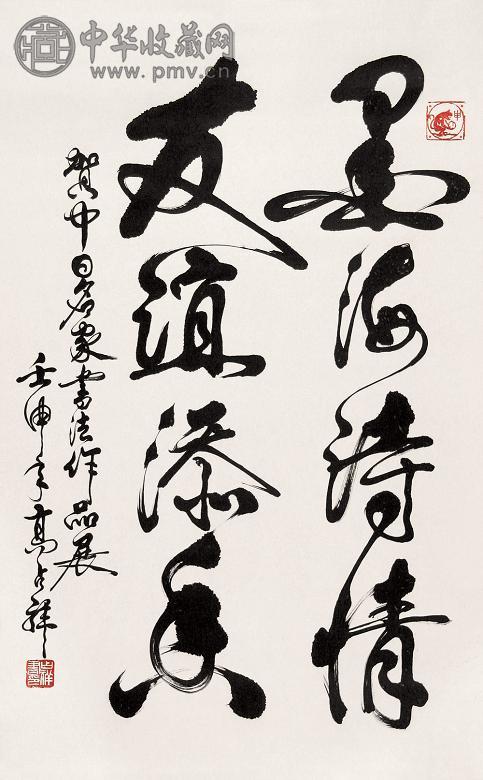 墨海诗情
友谊添香
贺中日名家书法作品展
壬申年高占祥
申
中华收藏网
www.pmv.cn